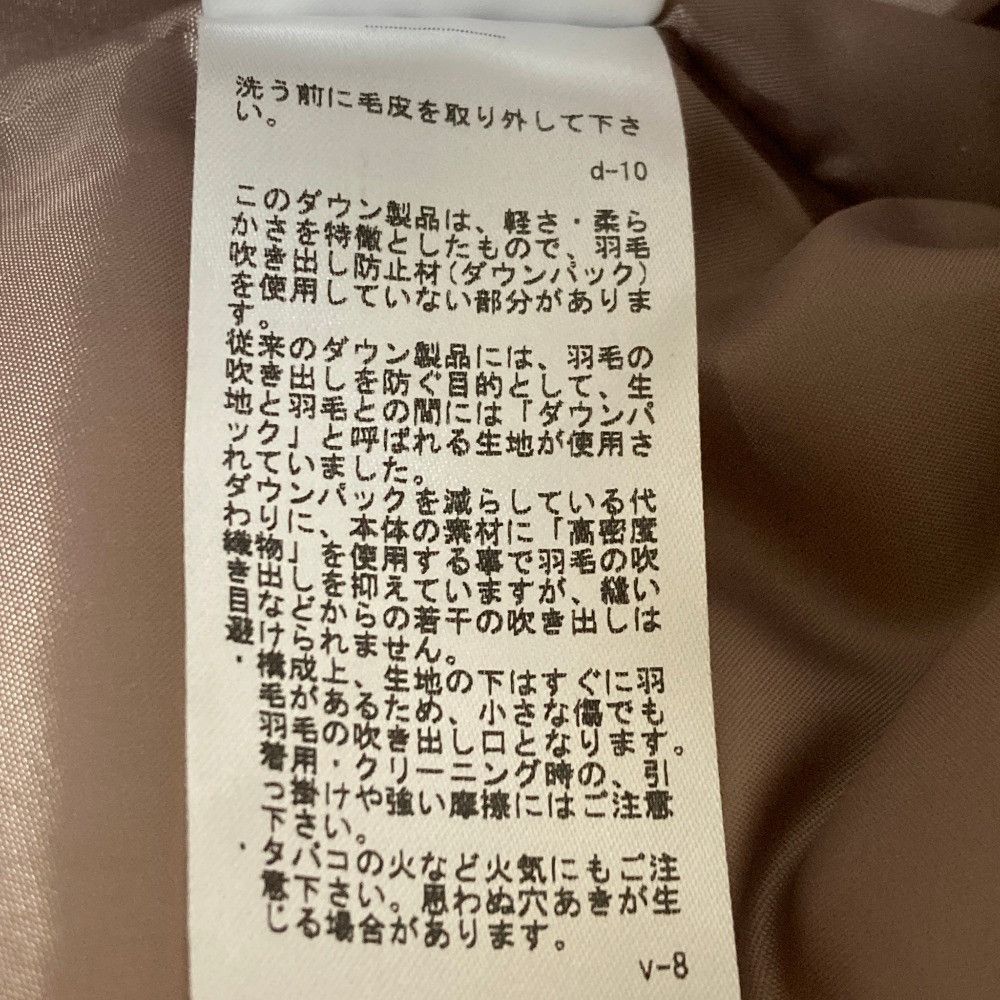 洗う前に毛皮を取り外して下さ
い。
d-10
このダウン製品は、軽さ・柔ら
かさを特徴としたもので、羽毛
吹き出し防止材(ダウンパック)
を使用していない部分がありま
す。
従来のダウン製品には、羽毛の
吹き出しを防ぐ目的として、生
地と羽毛との間には「ダウンパ
ック」と呼ばれる生地が使用さ
れていました。
ダウンパックを減らしている代
わりに、本体の素材に「高密度
織物」を使用する事で羽毛の吹
き出しを抑えていますが、縫い
目などからの若干の吹き出しは
避けられません。
・構成上、生地の下はすぐに羽
毛があるため、小さな傷でも
羽毛の吹き出し口となります。
着用・クリーニング時の、引
っ掛けや強い摩擦にはご注意
下さい。
・タバコの火など火気にもご注
意下さい。思わぬ穴あきが生
じる場合があります。
v-8